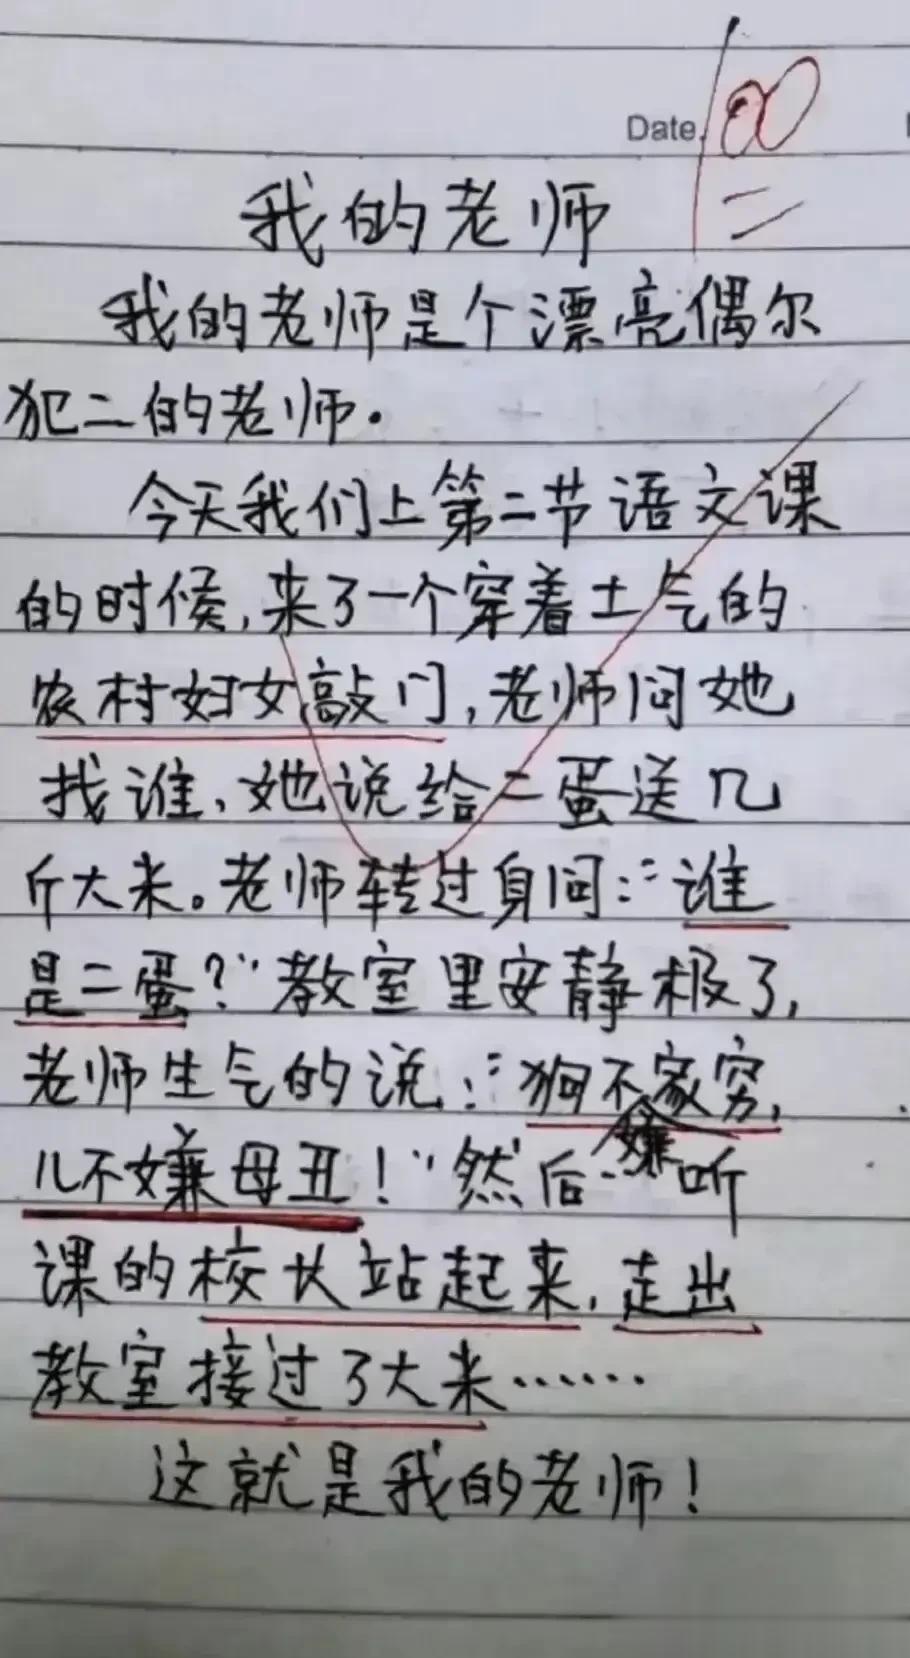 Date.
100
我的老师
我的老师是个漂亮偶尔
犯二的老师.
今天我们上第二节语文课
的时候,来了一个穿着土气的
农村妇女敲门,老师问她
找谁、她说给二蛋送几
斤大米。老师转过身问:“谁
是二蛋?”教室里安静极了,
老师生气的说:“狗不嫌家穷,
儿不嫌母丑!”然后听
课的校长站起来,走出
教室接过了大米……
这就是我的老师!